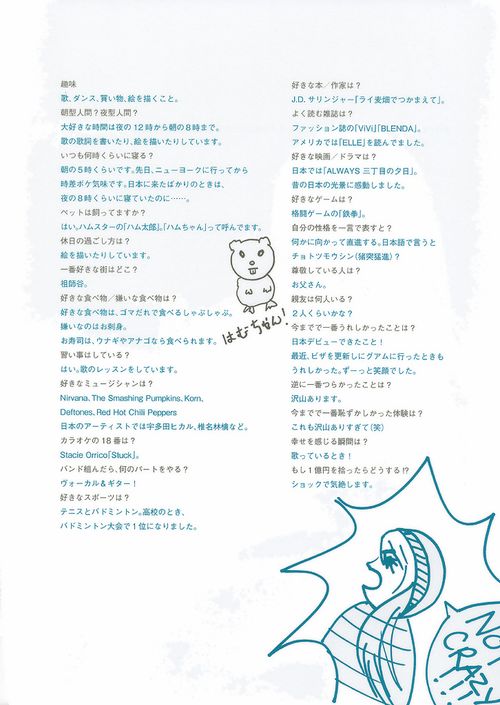 趣味
歌、ダンス、買い物、絵を描くこと。
朝型人間？夜型人間？
大好きな時間は夜の12時から朝の8時まで。
歌の歌詞を書いたり、絵を描いたりしています。
いつも何時くらいに寝る？
朝の5時くらいです。先日、ニューヨークに行ってから
時差ボケ気味です。日本に来たばかりのときは、
夜の8時くらいに寝ていたのに……。
ペットは飼ってますか？
はい。ハムスターの「ハム太郎」。「ハムちゃん」って呼んでます。
休日の過ごし方は？
絵を描いたりしています。
一番好きな街はどこ？
祖師谷。
好きな食べ物／嫌いな食べ物は？
好きな食べ物は、ゴマだれで食べるしゃぶしゃぶ。
嫌いなのはお刺身。
お寿司は、ウナギやアナゴなら食べられます。
習い事はしている？
はい。歌のレッスンをしています。
好きなミュージシャンは？
Nirvana、The Smashing Pumpkins、Korn、
Deftones、Red Hot Chili Peppers
日本のアーティストでは宇多田ヒカル、椎名林檎など。
カラオケの18番は？
Stacie Orrico「Stuck」。
バンド組んだら、何のパートをやる？
ヴォーカル＆ギター！
好きなスポーツは？
テニスとバドミントン。高校のとき、
バドミントン大会で1位になりました。
はむちゃん！
好きな本／作家は？
J.D. サリンジャー「ライ麦畑でつかまえて」。
よく読む雑誌は？
ファッション誌の「ViVi」「BLENDA」。
アメリカでは「ELLE」を読んでました。
好きな映画／ドラマは？
日本では「ALWAYS 三丁目の夕日」。
昔の日本の光景に感動しました。
好きなゲームは？
格闘ゲームの「鉄拳」。
自分の性格を一言で表すと？
何かに向かって直進する。日本語で言うと
チョトツモウシン（猪突猛進）？
尊敬している人は？
お父さん。
親友は何人いる？
2人くらいかな？
今までで一番うれしかったことは？
日本デビューできたこと！
最近、ビザを更新しにグアムに行ったときも
うれしかった。ずーっと笑顔でした。
逆に一番つらかったことは？
沢山あります。
今までで一番恥ずかしかった体験は？
これも沢山ありすぎて（笑）
幸せを感じる瞬間は？
歌っているとき！
もし1億円を拾ったらどうする!?
ショックで気絶します。
NOT
CRAZY
!!!